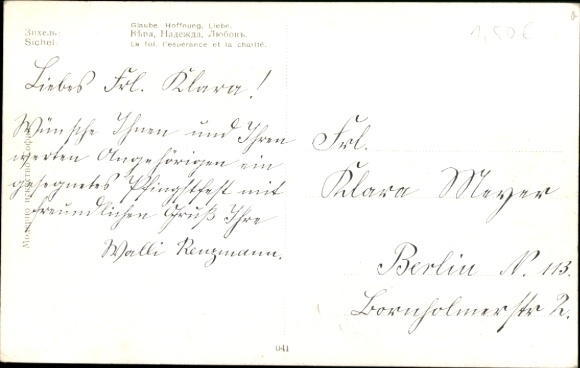 Зихель:
Sichel:
Glaube. Hoffnung, Liebe.
Вѣра, Надежда, Любовь.
La foi, l'espérance et la charité.
1,50 €
Liebes Frl. Klara!
Wünsche Ihnen und Ihren
werten Angehörigen ein
gesegnetes Pfingstfest mit
freundlichen Gruß Ihre
Walli Renzmann.
Frl.
Klara Meyer
Berlin N. 113.
Bornholmerstr 2.
041